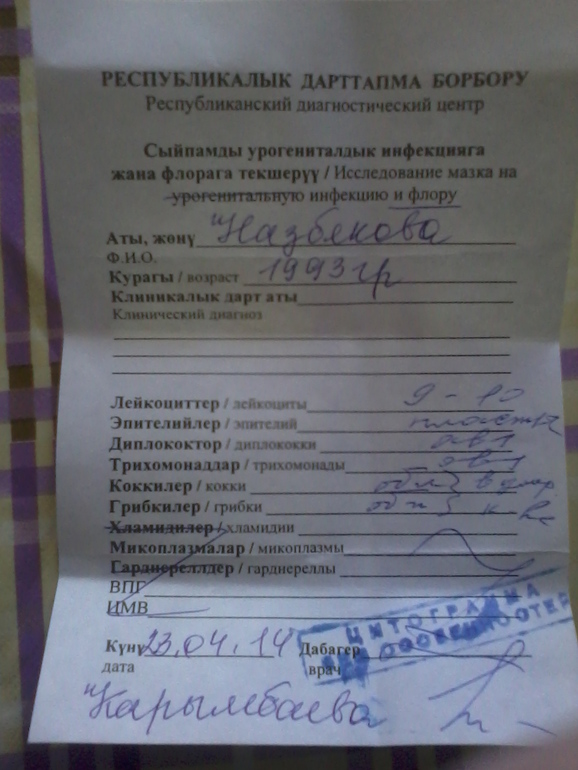 РЕСПУБЛИКАЛЫК ДАРТТАПМА БОРБОРУ
Республиканский диагностический центр
Сыйпамды урогениталдык инфекцияга
жана флорага текшерүү / Исследование мазка на
урогенитальную инфекцию и флору
Аты, жөнү Назбекова
Ф.И.О.
Курагы / возраст 1993 гр
Клиникалык дарт аты
Клинический диагноз
Лейкоциттер / лейкоциты 9 - 10
Эпителийлер / эпителий
Диплококтор / диплококки
Трихомонаддар / трихомонады
Коккилер / кокки
Грибкилер / грибки
Хламидилер / хламидии
Микоплазмалар / микоплазмы
Гарднереллдер / гарднереллы
ВПГ
ЦМВ
ЦИТОГРАММА
БЕЗ ОСОБЕННОСТЕЙ
Күнү 23.04.14 Дабагер
дата врач
Карымбаева